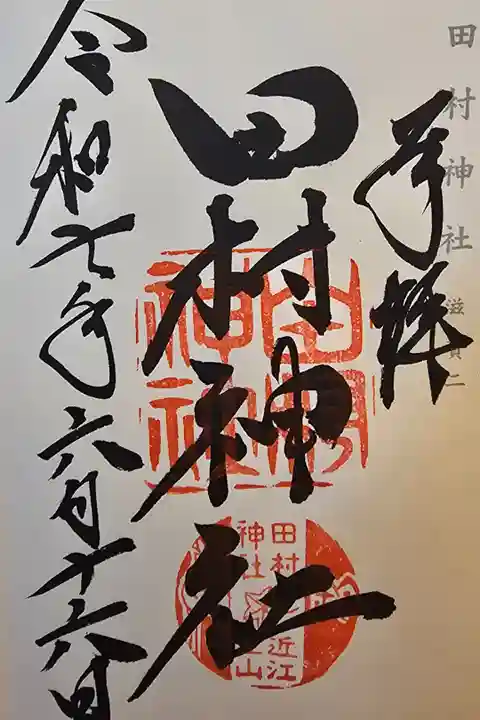 田村神社
奉拝
田村神社
令和七年六月十六日
田村
神社
田村
神社
近江
山